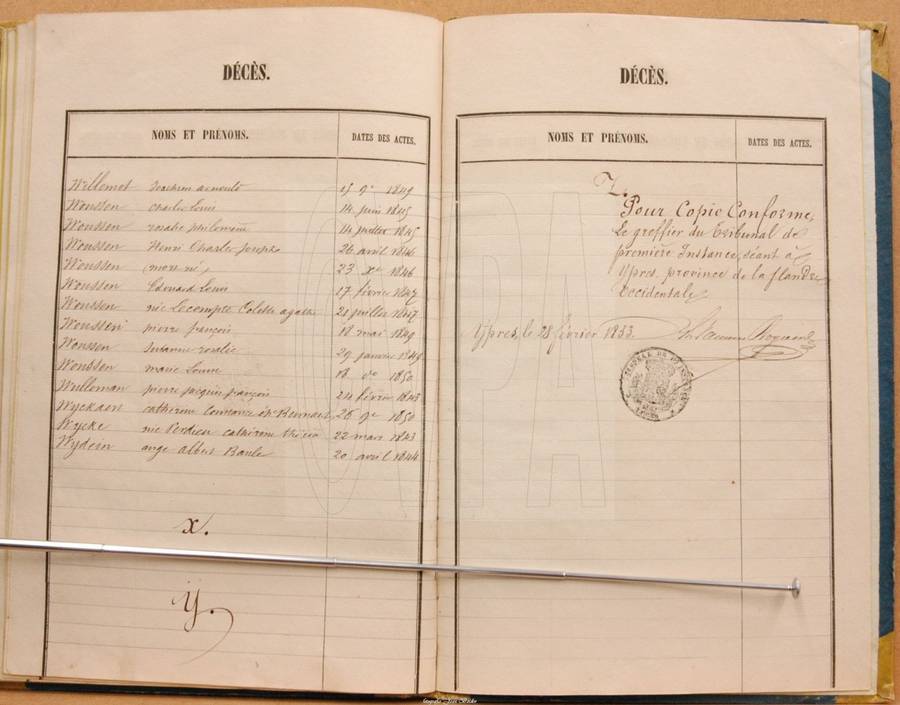 DÉCÈS.
NOMS ET PRÉNOMS. DATES DES ACTES.
Willemot Joachim arnould 15 9e 1849
Woussen charles Louis 14 juin 1845
Woussen rosalie philomène 14 juillet 1845
Woussen Henri Charle joseph 26 avril 1846
Woussen (mort né) 23 Xe 1846
Woussen Edouard Louis 17 février 1847
Woussen née Lecompte Colette agathe 21 juillet 1847
Woussen pierre françois 18 mai 1849
Woussen Suzanne rosalie 29 janvier 1849
Woussen marie Louise 18 do 1850
Wulleman pierre jacques françois 24 février 1843
Wyckaert catherine Constance 26 9e 1850
Wycke née Verdieu catherine 22 mars 1843
Wydein ange albert Basile 20 avril 1844
x.
y.
DÉCÈS.
NOMS ET PRÉNOMS. DATES DES ACTES.
Z.
Pour Copie Conforme,
Le greffier du Tribunal de
première Instance, séant à
Ypres, province de la flandre
Occidentale,
Ypres, le 28 février 1853.